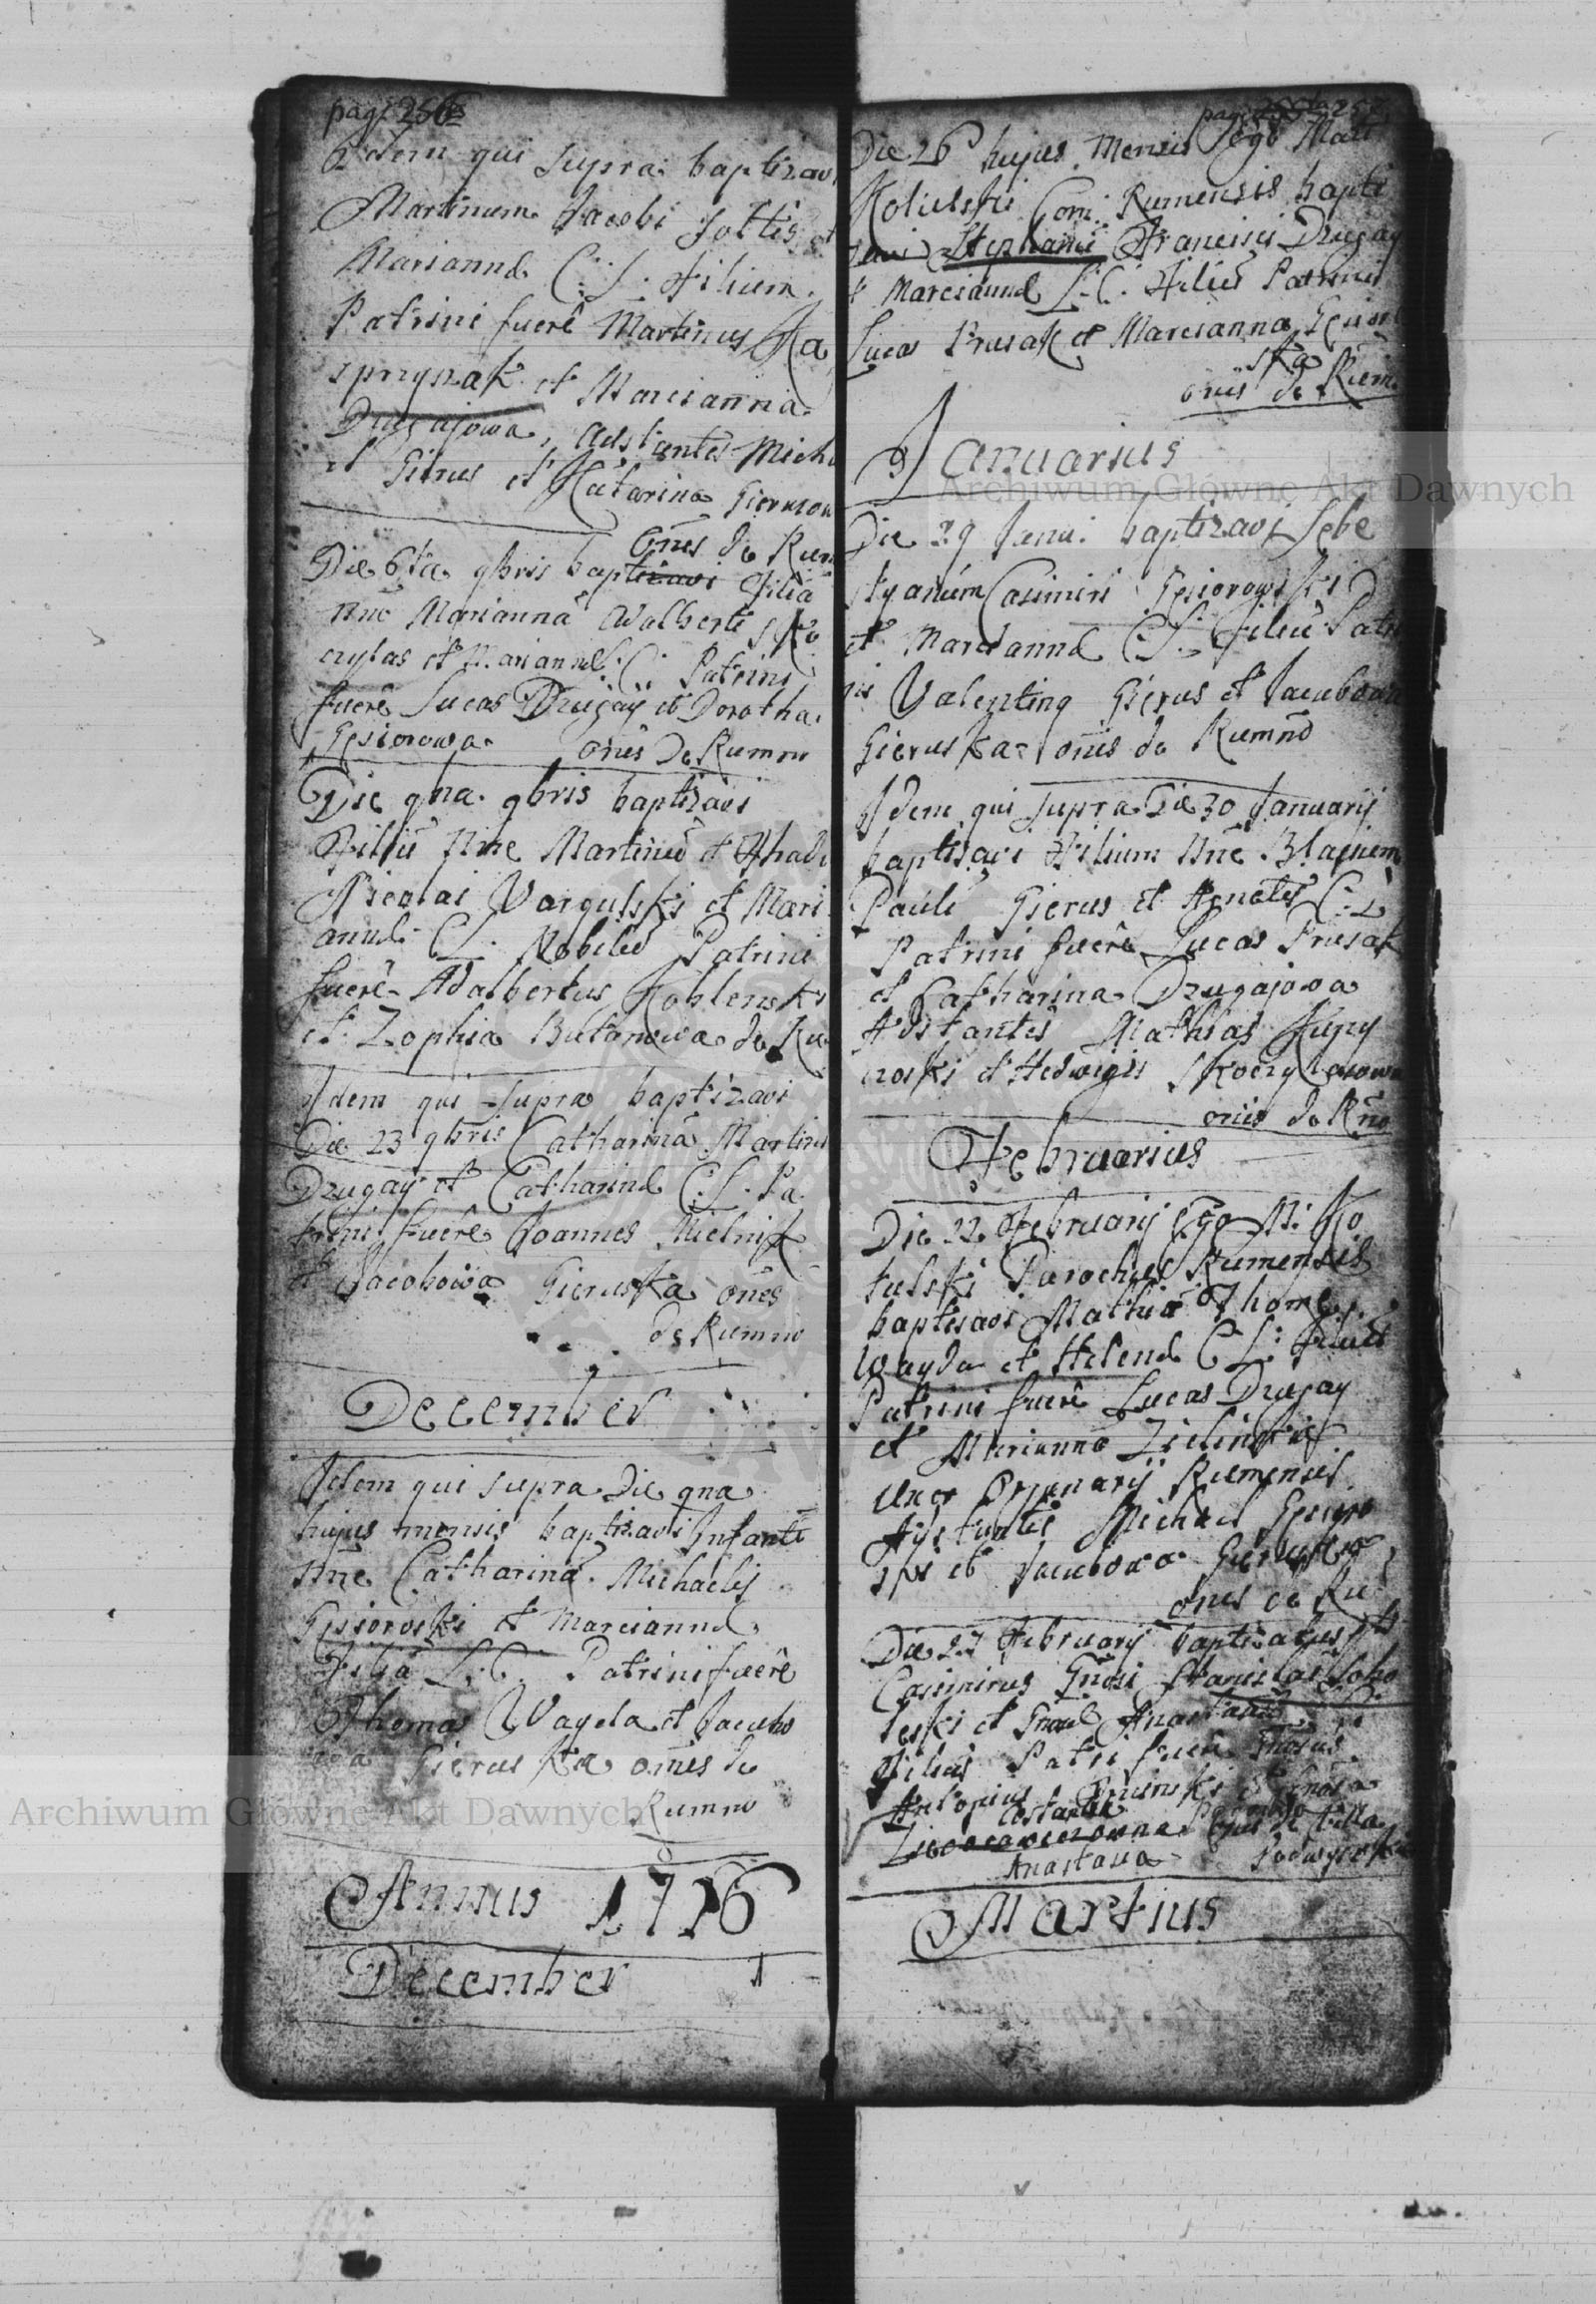 pag: 256
Idem qui supra baptizavi
Martinum Jacobi Soltis et
Mariannæ C: L: filium.
Patrini fuerê Martinus Ka
sprzyszak et Marcianna
Drugajowa, adstantes Micha
el Gierus et Katarina Gierusow
omês de Rum
Die 6ta 9bris baptizavi filiã
nne Mariannã Adalberti Sko
czylas et Mariannæ C: Patrini
fuerê Lucas Drugay et Dorotha
Gęsiorowa omês De Rumno
Die 9na 9bris baptizavi
Filiũ nne Martinũ et Thade
Nicolai Vargulski et Mari
annæ C L. Nobiliũ Patrini
fuerê Adalbertus Koblenski
et Zophia Butanowa de Ru
Idem qui supra baptizavi
Die 23 9bris Catharinã Martini
Drugay et Catharinæ C: L. Pa
trini fuerê Joannes Mielnik
et Jacobowa Gieruska omês
de Rumno
December
Idem qui supra Die 9na
hujus mensis baptizavi Infantẽ
nne Catharinã Michaelis
Gęsioroski et Marciannæ
Filiã L: C. Patrini fuerê
Thomas Wayda et Jacubo
wa Gieruska omês de
Rumno
Annus 1716
December 1
pag: 257
Die 26 hujus Mensis Ego Matt
Kotulski Com: Rumensis bapti
zavi Stephanũ Francisci Drugay
et Marciannæ L: C. Filiũ Patrini
Lucas Prusak et Marcianna Gęsior
ska
omês de Rum
Januarius
Die 29 Janu: baptizavi Sebe
styanum Casimiri Gęsiorowski
et Marciannæ C: L: filiũ Patri
ni Valentinq Gierus et Jacubowa
Gieruska omês de Rumno
Idem qui supra Die 30 Januarij
baptisavi Filium nnê Blasium
Pauli Gierus et Agnetis C: L
Patrini fuerê Lucas Prusak
et Catharina Drugajowa
Adstantes Mathias Juny
woski et Hedwigis Skoczylasowa
omês de Rno
Februarius
Die 22 Februarij Ego M: Ko
tulski Parochus Rumensis
baptisavi Mathiã Thomę
Wayda et Helenæ C L: filiũ
Patrini fuerê Lucas Drugay
et Marianna Zielinska
uxor Rumensis
Adstantes Michael Gęsioro
ski et Jacubowa Gieruska
omês de Ru
Die 27 February baptizatus
Casimirus Gnosi Stanislai Sobo
leski et Gnæ Anastasiæ
filius Patri fuerê Gnosus
Antonius et Gnosa
Costantia
Anastasia
Martius
Archiwum Główne Akt Dawnych
Archiwum Główne Akt Dawnych